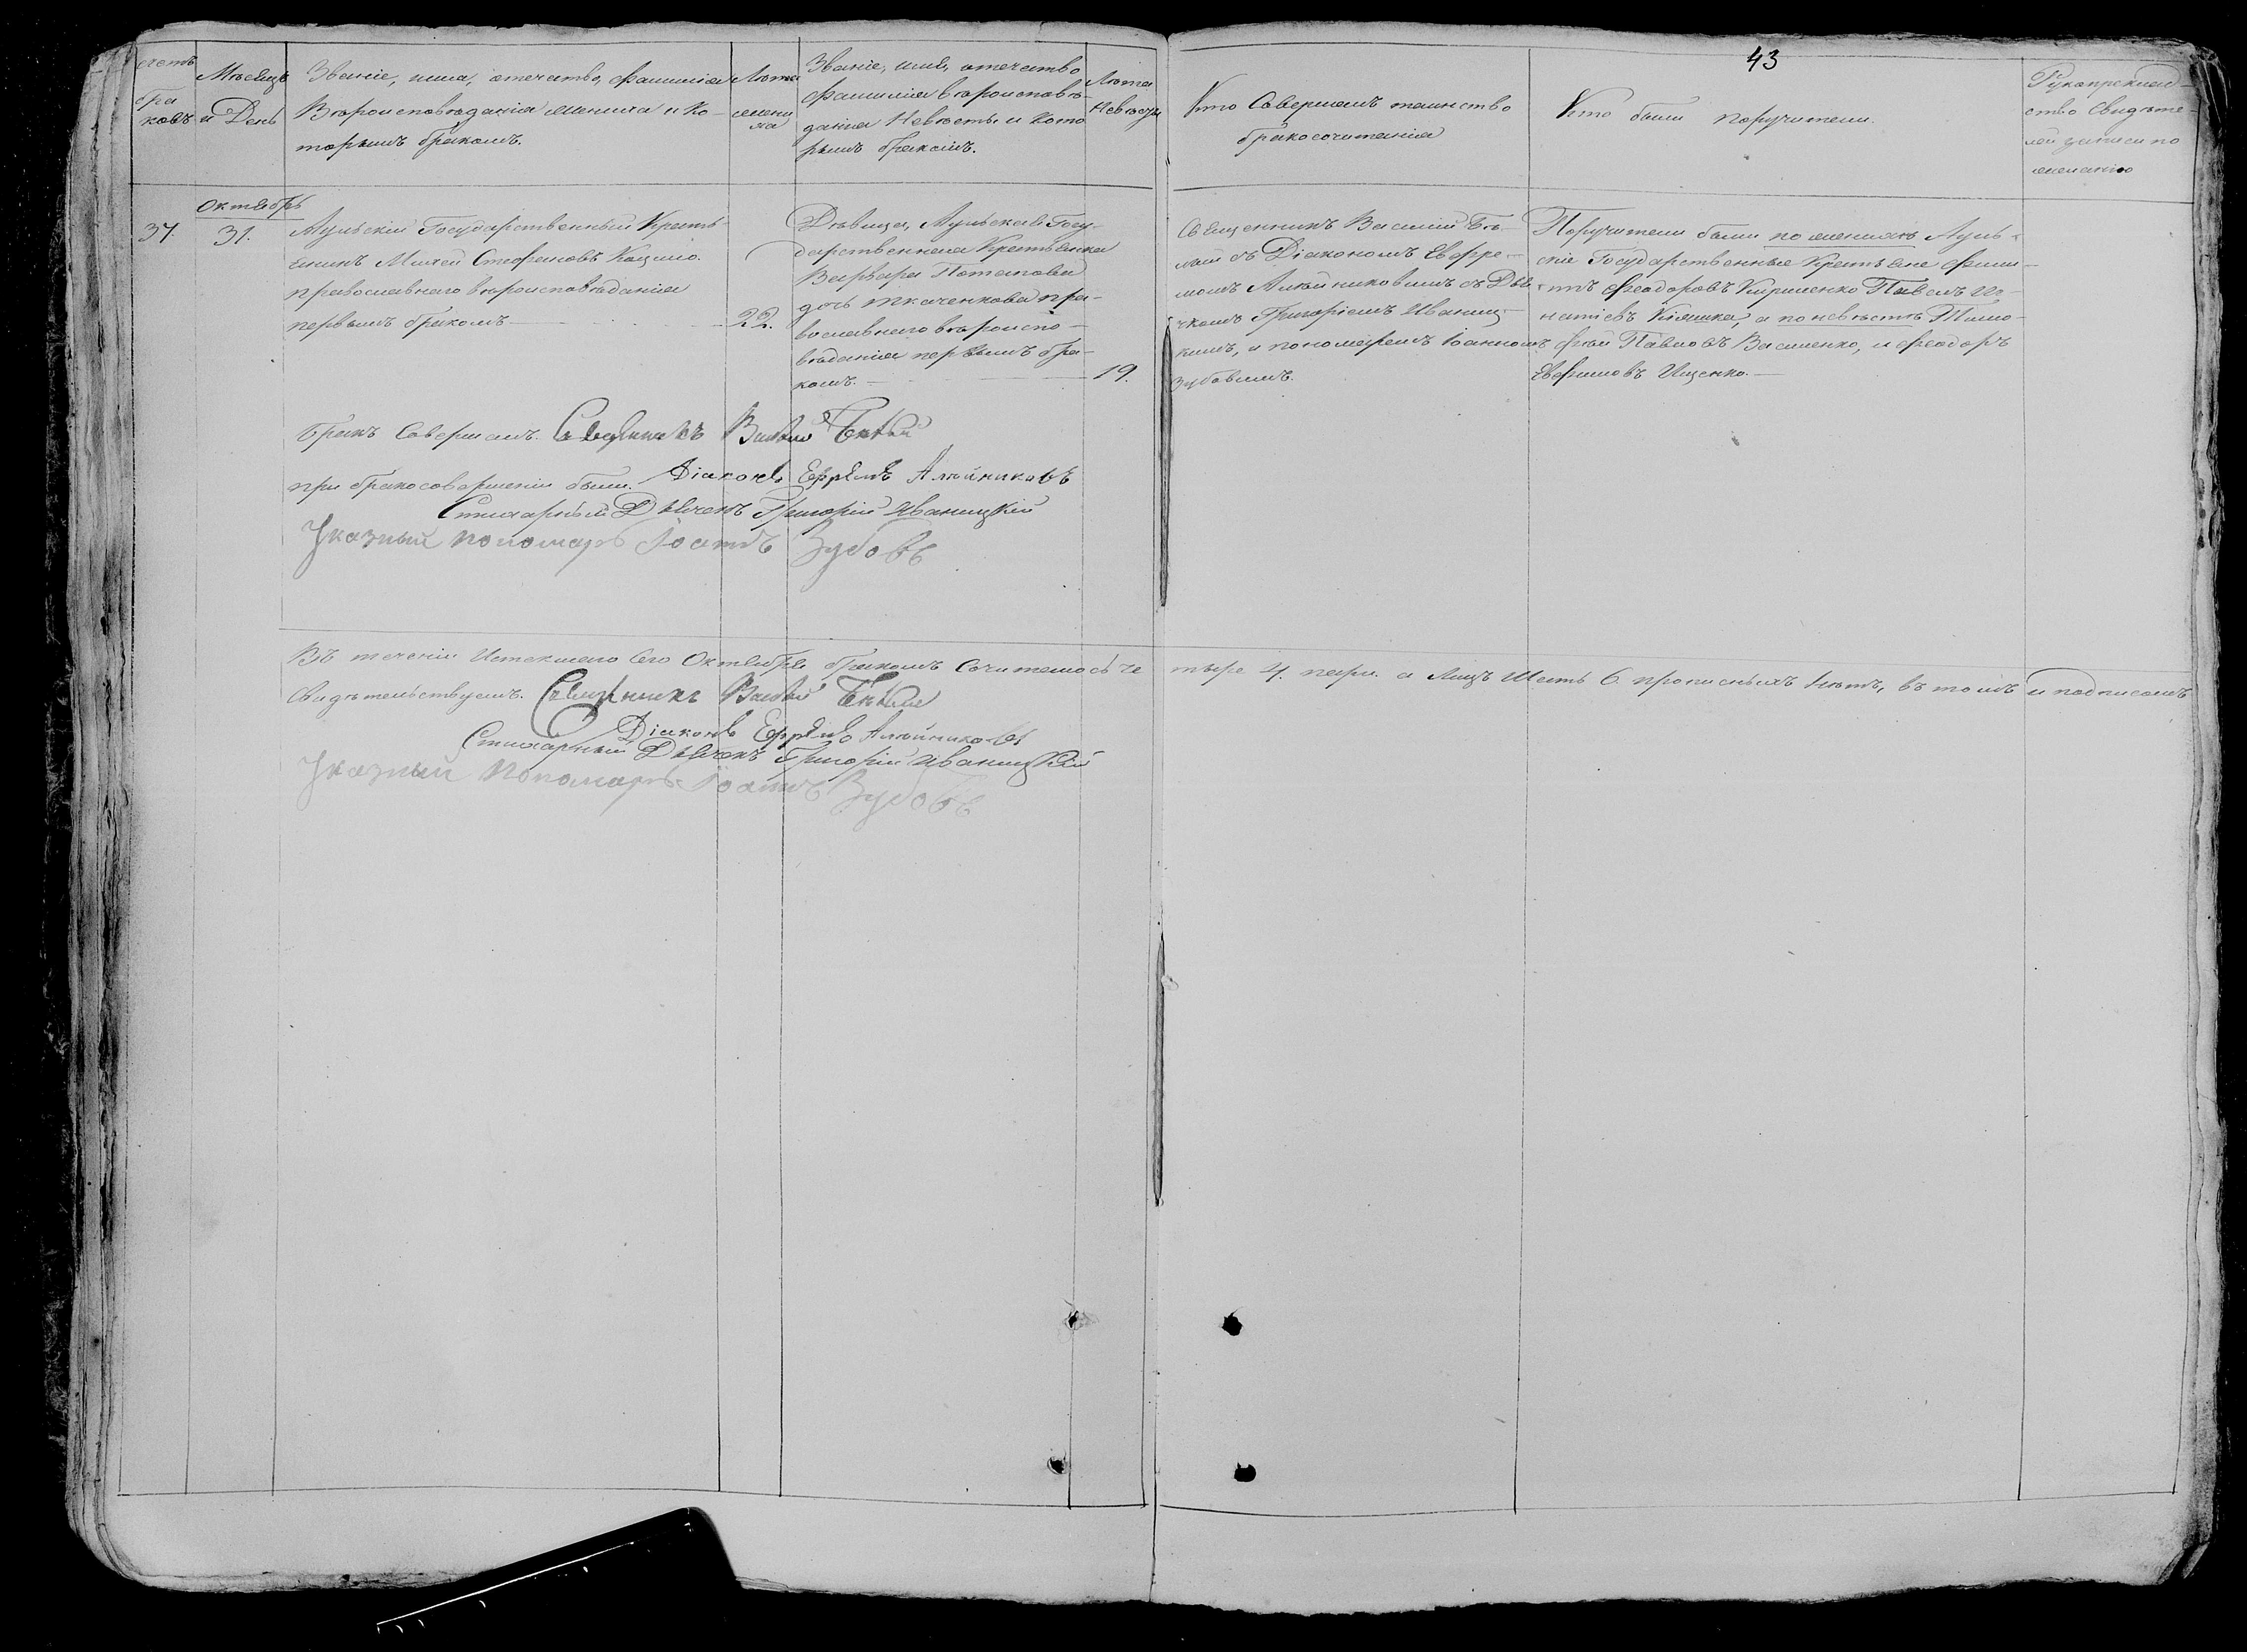 43
счетъ браковъ
Мѣсяцъ и День
Званіе, имя, отечество, фамилія
Вѣроисповѣданія жениха и Ко-
торымъ бракомъ.
Лѣта жениха
Званіе, имя, отечество
фамилія вѣроисповѣ-
данія Невѣсты и кото
рымъ бракомъ.
Лѣта Невѣсты
Кто Совершалъ таинство
бракосочитанія
Кто были поручители.
Рукоприклад-
ство Свидѣте-
лей записи по
желанію
Октябрь
37.
31.
Аульскій Государственный Кресть-
янинъ Стефановъ
православнаго вѣроисповѣданія
первымъ бракомъ
22.
Дѣвица, Аульская Госу-
дарственная Крестьянка
Варвара Потапова
дочь Ткаченкова пра-
вославнаго вѣроиспо-
вѣданія первымъ бра-
комъ.
19.
Священникъ Василій Бѣ-
лый съ Діакономъ Евфре-
момъ Алѣйниковымъ съ Дья-
чкомъ Григоріемъ Иваниц-
кимъ, и пономаремъ Іоанномъ
Зубовымъ.
Поручители были по женихѣ Ауль-
скіе Государственные Крестьяне Фили-
пъ Феодоровъ Кириленко Павелъ Иг-
натіевъ а по невѣстѣ Тимо-
фей Павловъ Василенко, и Феодоръ
Евфимовъ Ищенко.
Бракъ Совершалъ. Священникъ Василій Бѣлый
при бракосовершеніи были. Діаконъ Ефремъ Алѣйниковъ
Стихарный Дьячекъ Григорій Иваницкій
Указный пономарь Іоаннъ Зубовъ
Въ теченіи Истекшаго Сего Октября бракомъ Сочиталось че тыре 4. пары. а Лицъ Шесть 6 прописныхъ нѣтъ, въ томъ и подписомъ
Свидѣтельствуемъ. Священникъ Василій Бѣлый
Діаконъ Ефремъ Алѣйниковъ
Стихарный Дьячекъ Григорій Иваницкій
Указный Пономарь Іоаннъ Зубовъ